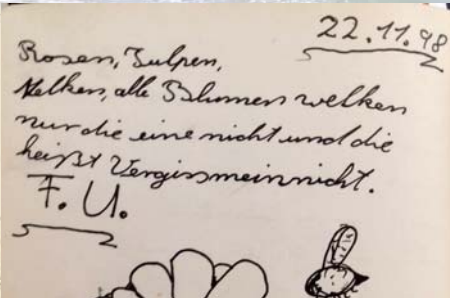 22.11.98
Rosen, Tulpen,
Nelken, alle Blumen welken
nur die eine nicht und die
heißt Vergissmeinnicht.
F. U.